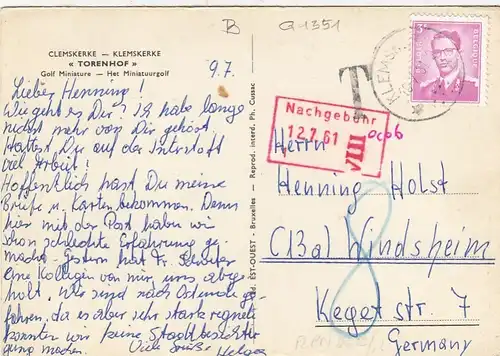 B G1351
CLEMSKERKE — KLEMSKERKE
« TORENHOF »
Golf Miniature — Het Miniatuurgolf
9.7.
Lieber Henning!
Wie geht es Dir? Ich habe lange
nichts mehr von Dir gehört.
Hattest Du auf der Interstoff
viel Arbeit?
Hoffentlich hast Du meine
Briefe u. Karten bekommen. Denn
hier mit der Post haben wir
schon schlechte Erfahrung ge-
macht. Gestern hat Fr.
eine Kollegin von mir uns abge-
holt. Wir sind nach Ostende ge-
fahren, da es aber sehr stark regnete
konnten wir keine Stadtbesichti-
gung machen. Viele Grüße Helga
Ed. ESTOUEST - Bruxelles - Reprod. interd. Ph. Cussac
T
KLEMSK
BELGIQUE
3F
Nachgebühr
12.7.61
VIII
Herrn
Henning Holst
(13a) Windsheim
Kegetstr. 7
Germany
8